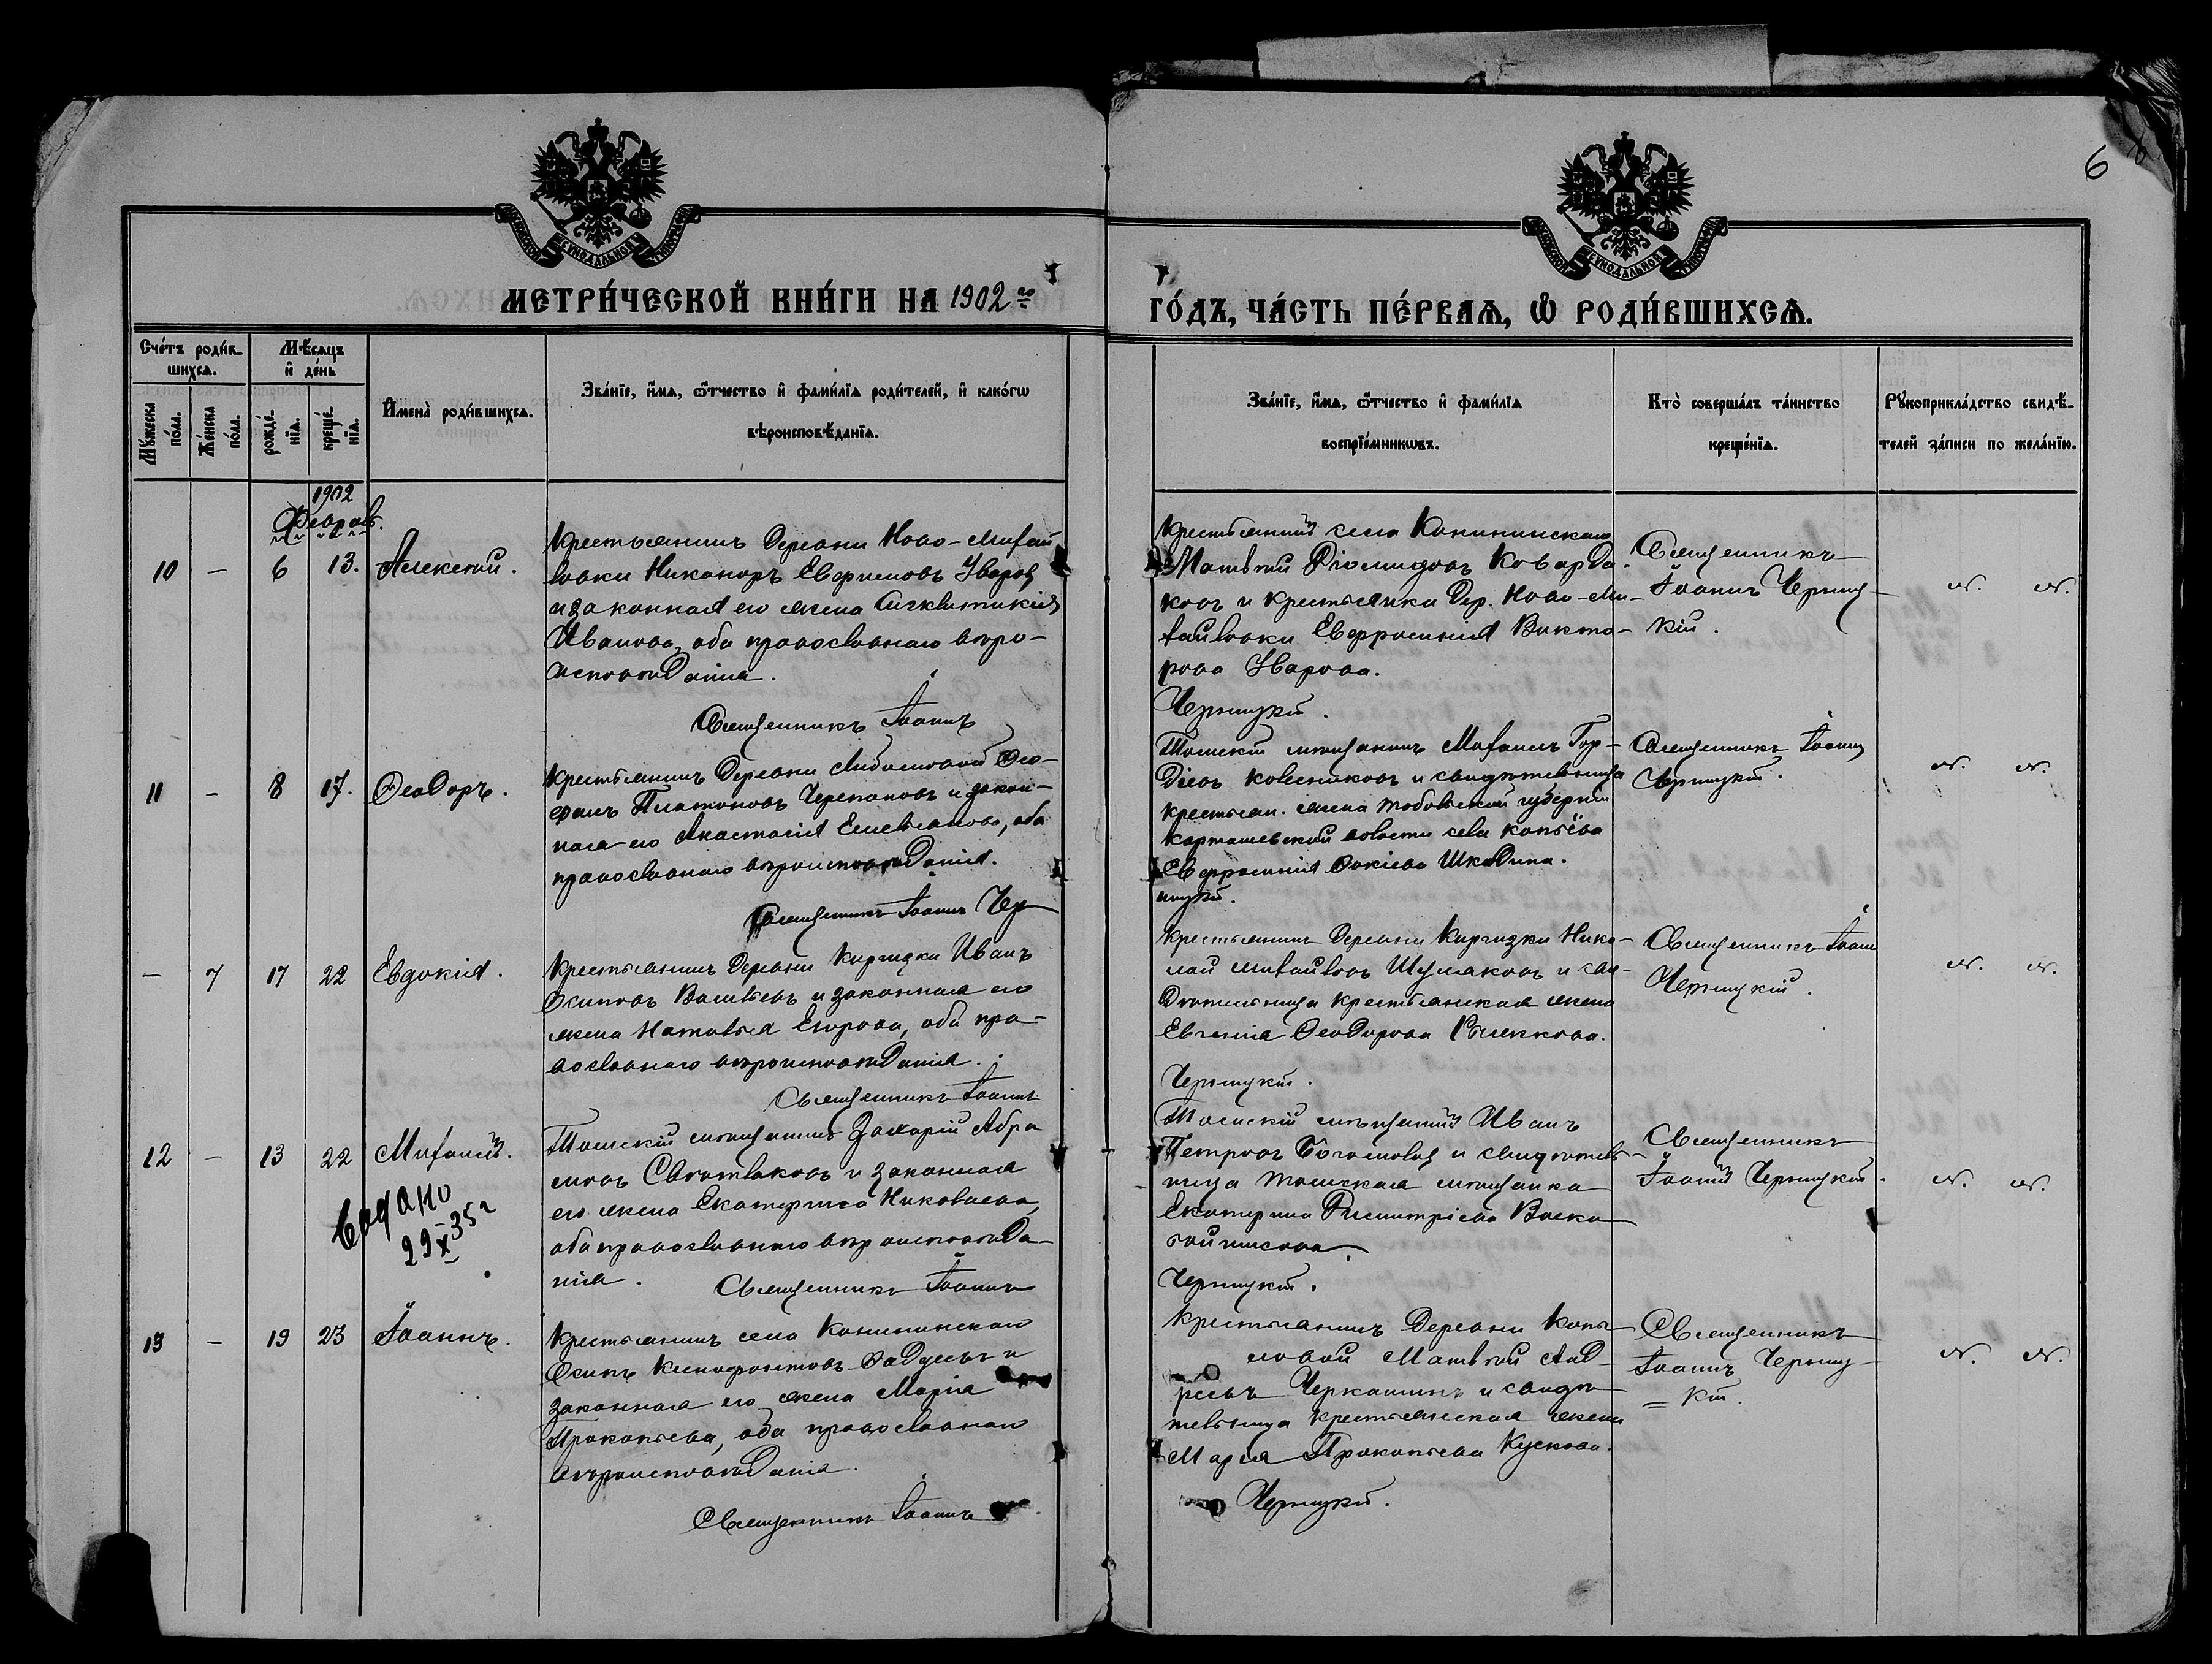 6
МЕТРИ́ЧЕСКОЙ КНИ́ГИ НА 1902 го
ГО́ДЪ, ЧА́СТЬ ПЕ́РВАѦ, Ѽ РОДИ́ВШИХСѦ.
Счéтъ роди́в-
шихсѧ.
Мꙋжеска по́ла.
Же́нска по́ла.
Мѣсѧцъ
и҆ де́нь
рожде́нїѧ.
креще́нїѧ.
И҆мена̀ роди́вшихсѧ.
Зва́нїе, и҆́мѧ, ѻ҆́тчество и҆ фами́лїѧ роди́телей, и҆ како́гѡ
вѣроисповѣ́данїѧ.
Зва́нїе, и҆́мѧ, ѻ҆́тчество и҆ фами́лїѧ
воспрїе́мникѡвъ.
Кто̀ соверша́лъ та́инство
креще́нїѧ.
Рꙋкоприкла́дство свидѣ́-
телей за́писи по жела́нїю.
1902
Феврал.
10 – 6 13. Алексѣй.
Крестьянинъ деревни Ново-Михай
ловки Никаноръ Евфимовъ Уваровъ
и законная его жена
Иванова, оба православнаго вѣро-
исповѣданія.
Священникъ Іоаннъ
Крестьянинъ села Конининскаго
Матвѣй Діомидовъ Коварда-
ковъ и крестьянка дер. Ново-Ми-
хайловки Евфросинія Викто-
рова Уварова.
Черницкій.
Священникъ
Іоаннъ Черниц-
кій.
11 – 8 17. Ѳеодоръ.
Крестьянинъ деревни Ѳео-
фанъ Платоновъ Черепановъ и закон-
ная его Анастасія Емельянова, оба
православнаго вѣроисповѣданія.
Священникъ Іоаннъ Чер
Томскій мѣщанинъ Михаилъ Гор-
дѣевъ Колесниковъ и свидѣтельница
крестьян. жена Тобольской губерніи
Карташевской волости села Копьёва
Евфросинія Фокіева Шкодина.
ницкій.
Священникъ Іоаннъ
Черницкій.
– 7 17 22 Евдокія.
Крестьянинъ деревни Киргизки Иванъ
Осиповъ Васильевъ и законная его
жена Наталья Егорова, оба пра-
вославнаго вѣроисповѣданія.
Священникъ Іоаннъ
Крестьянинъ деревни Киргизки Нико-
лай Михайловъ Шумаковъ и сви-
дѣтельница крестьянская жена
Евгенія Ѳеодорова
Черницкій.
Священникъ Іоаннъ
Черницкій.
12 – 13 22 Михаилъ.
Выдано
22 X 35 г
Томскій мѣщанинъ Захарій Абра
мовъ и законная
его жена Екатерина Николаева,
оба православнаго вѣроисповѣда-
нія. Священникъ Іоаннъ
Томскій мѣщанинъ Иванъ
Петровъ Богомоловъ и свидѣтель-
ница томская мѣщанка
Екатерина Димитріева
Черницкій.
Священникъ
Іоаннъ Черницкій.
13 – 19 23 Іоаннъ.
Крестьянинъ села Конининскаго
Осипъ Ксенофонтовъ Фаддѣевъ и
законная его жена Марія
Прокопьева, оба православнаго
вѣроисповѣданія.
Священникъ Іоаннъ
Крестьянинъ деревни Копы
ловой Матвѣй Анд-
реевъ Черкашинъ и свидѣ
тельница крестьянская жена
Марія Прокопьева Кускова.
Черницкій.
Священникъ
Іоаннъ Черниц-
кій.